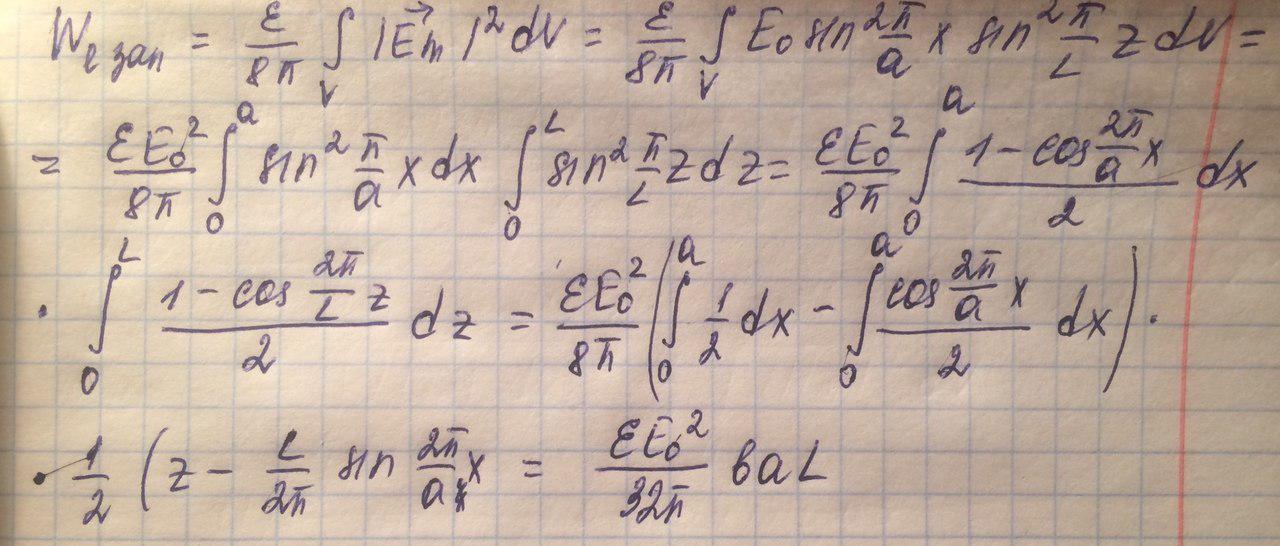 W_{е зап} = \frac{ε}{8π} ∫_V |\vec{E_m}|² dV = \frac{ε}{8π} ∫_V E₀ sin² \frac{π}{a} x sin² \frac{π}{L} z dV =
= \frac{εE₀²}{8π} ∫_0^a sin² \frac{π}{a} x dx ∫_0^L sin² \frac{π}{L} z dz = \frac{εE₀²}{8π} ∫_0^a \frac{1 - cos \frac{2π}{a} x}{2} dx
· ∫_0^L \frac{1 - cos \frac{2π}{L} z}{2} dz = \frac{εE₀²}{8π} ( ∫_0^a \frac{1}{2} dx - ∫_0^a \frac{cos \frac{2π}{a} x}{2} dx ) ·
· \frac{1}{2} ( z - \frac{L}{2π} sin \frac{2π}{a} x = \frac{εE₀²}{32π} вaL